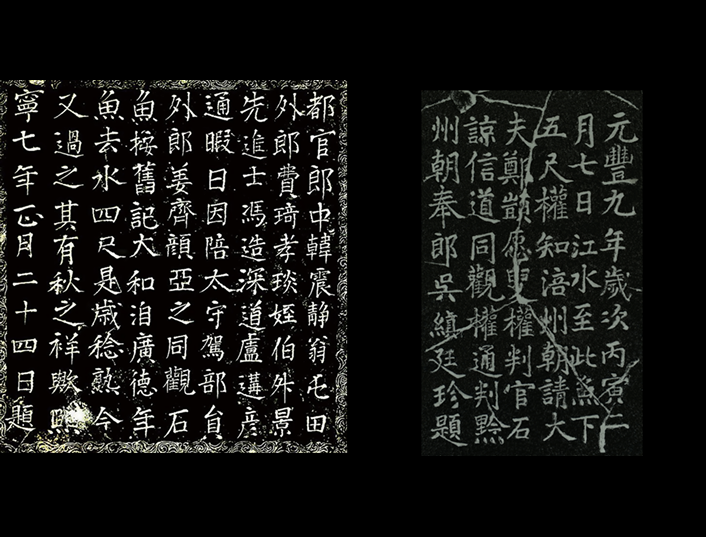 都官郎中韓震静翁屯田
外郎費琦孝琰姪伯升景
先進士馮造深道盧遘彦
通暇日因陪太守駕部員
外郎姜齊顔亞之同觀石
魚按舊記大和洎廣德年
魚去水四尺是歳稔熟今
又過之其有秋之祥歟熙
寧七年正月二十四日題
元豐九年歲次丙寅二
月七日江水至此魚下
五尺權知涪州朝請大
夫鄭顗愿叟權判官石
諒信道同觀權通判黔
州朝奉郎吳縝廷珍題